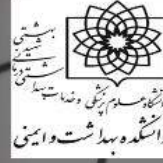 دانشگاه علوم پزشکی و خدمات بهداشتی درمانی شهید بهشتی
دانشکده بهداشت و ایمنی